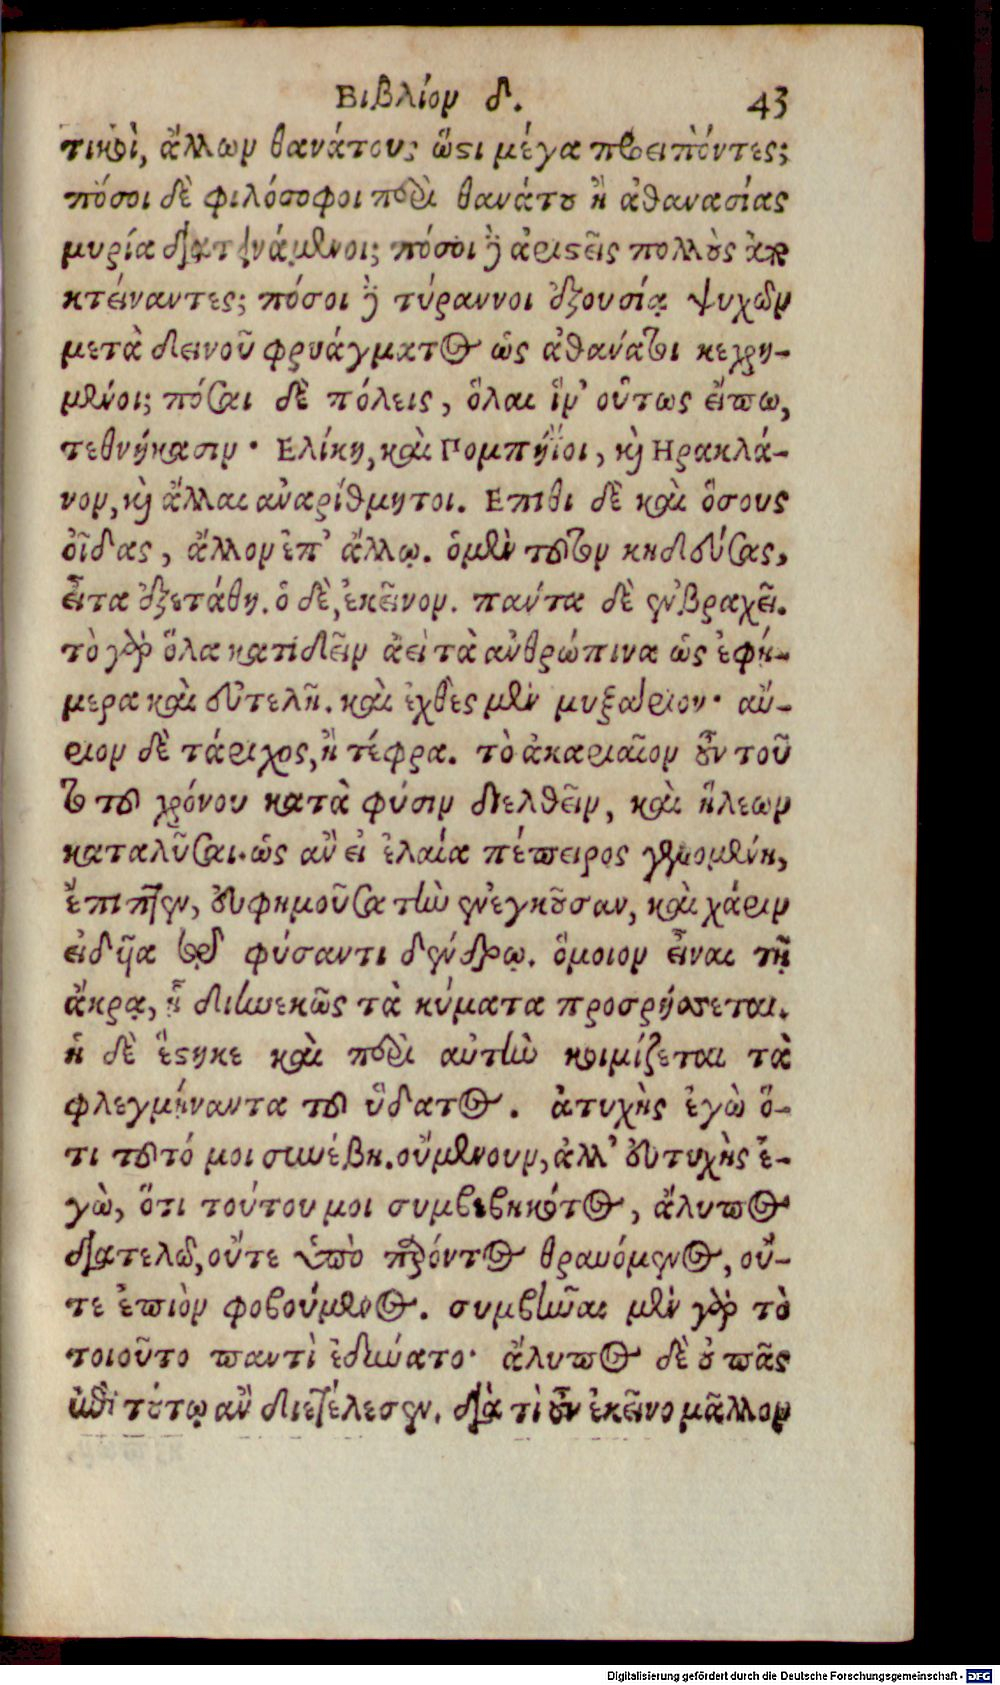 Βιβλίον δ. 43
τικοὶ, ἄλλων θανάτους ὥς τι μέγα προειπόντες;
πόσοι δὲ φιλόσοφοι περὶ θανάτου ἢ ἀθανασίας
μυρία διατεινάμενοι; πόσοι δὲ ἀριστεῖς πολλοὺς ἀπο
κτείναντες; πόσοι δὲ τύραννοι ἐξουσίᾳ ψυχῶν
μετὰ δεινοῦ φρυάγματος ὡς ἀθάνατοι κεχρη-
μένοι; πόσαι δὲ πόλεις, ὅλαι ἵν' οὕτως εἴπω,
τεθνήκασιν· Ελίκη, καὶ Πομπήϊοι, καὶ Ηρακλά-
νον, καὶ ἄλλαι ἀναρίθμητοι. Επιθι δὲ καὶ ὅσους
οἶδας, ἄλλον ἐπ' ἄλλῳ. ὁ μὲν τοῦτον κηδεύσας,
εἶτα ἐξετάθη. ὁ δὲ, ἐκεῖνον. πάντα δὲ ἐν βραχεῖ.
τὸ γὰρ ὅλα κατιδεῖν ἀεὶ τὰ ἀνθρώπινα ὡς ἐφή-
μερα καὶ εὐτελῆ. καὶ ἐχθὲς μὲν μυξάριον· αὔ-
ριον δὲ τάριχος, ἢ τέφρα. τὸ ἀκαριαῖον οὖν τοῦ
το τοῦ χρόνου κατὰ φύσιν διελθεῖν, καὶ ἵλεων
καταλῦσαι. ὡς ἂν εἰ ἐλαία πέπειρος γενομένη,
ἔπιπτεν, εὐφημοῦσα τὴν ἐνεγκοῦσαν, καὶ χάριν
εἰδυῖα τῷ φύσαντι δένδρῳ. ὅμοιον εἶναι τῇ
ἄκρᾳ, ᾗ διηνεκῶς τὰ κύματα προσρήσσεται.
ἡ δὲ ἕστηκε καὶ περὶ αὐτὴν κοιμίζεται τὰ
φλεγμήναντα τοῦ ὕδατος. ἀτυχὴς ἐγὼ ὅ-
τι τοῦτό μοι συνέβη. οὔμενουν, ἀλλ' εὐτυχὴς ἐ-
γὼ, ὅτι τούτου μοι συμβεβηκότος, ἄλυπος
διατελῶ, οὔτε ὑπὸ παρόντος θραυόμενος, οὔ-
τε ἐπιὸν φοβούμενος. συμβῆναι μὲν γὰρ τὸ
τοιοῦτο παντὶ ἐδύνατο· ἄλυπος δὲ οὐ πᾶς
ἐπὶ τούτῳ ἂν διετέλεσεν. διὰ τὶ οὖν ἐκεῖνο μᾶλλον
Digitalisierung gefördert durch die Deutsche Forschungsgemeinschaft - DFG